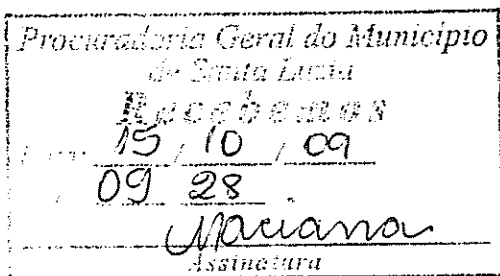 Procuradoria Geral do Município
de Santa Luzia
Recebemos
15 / 10 / 09
09 28
Mariana
Assinatura